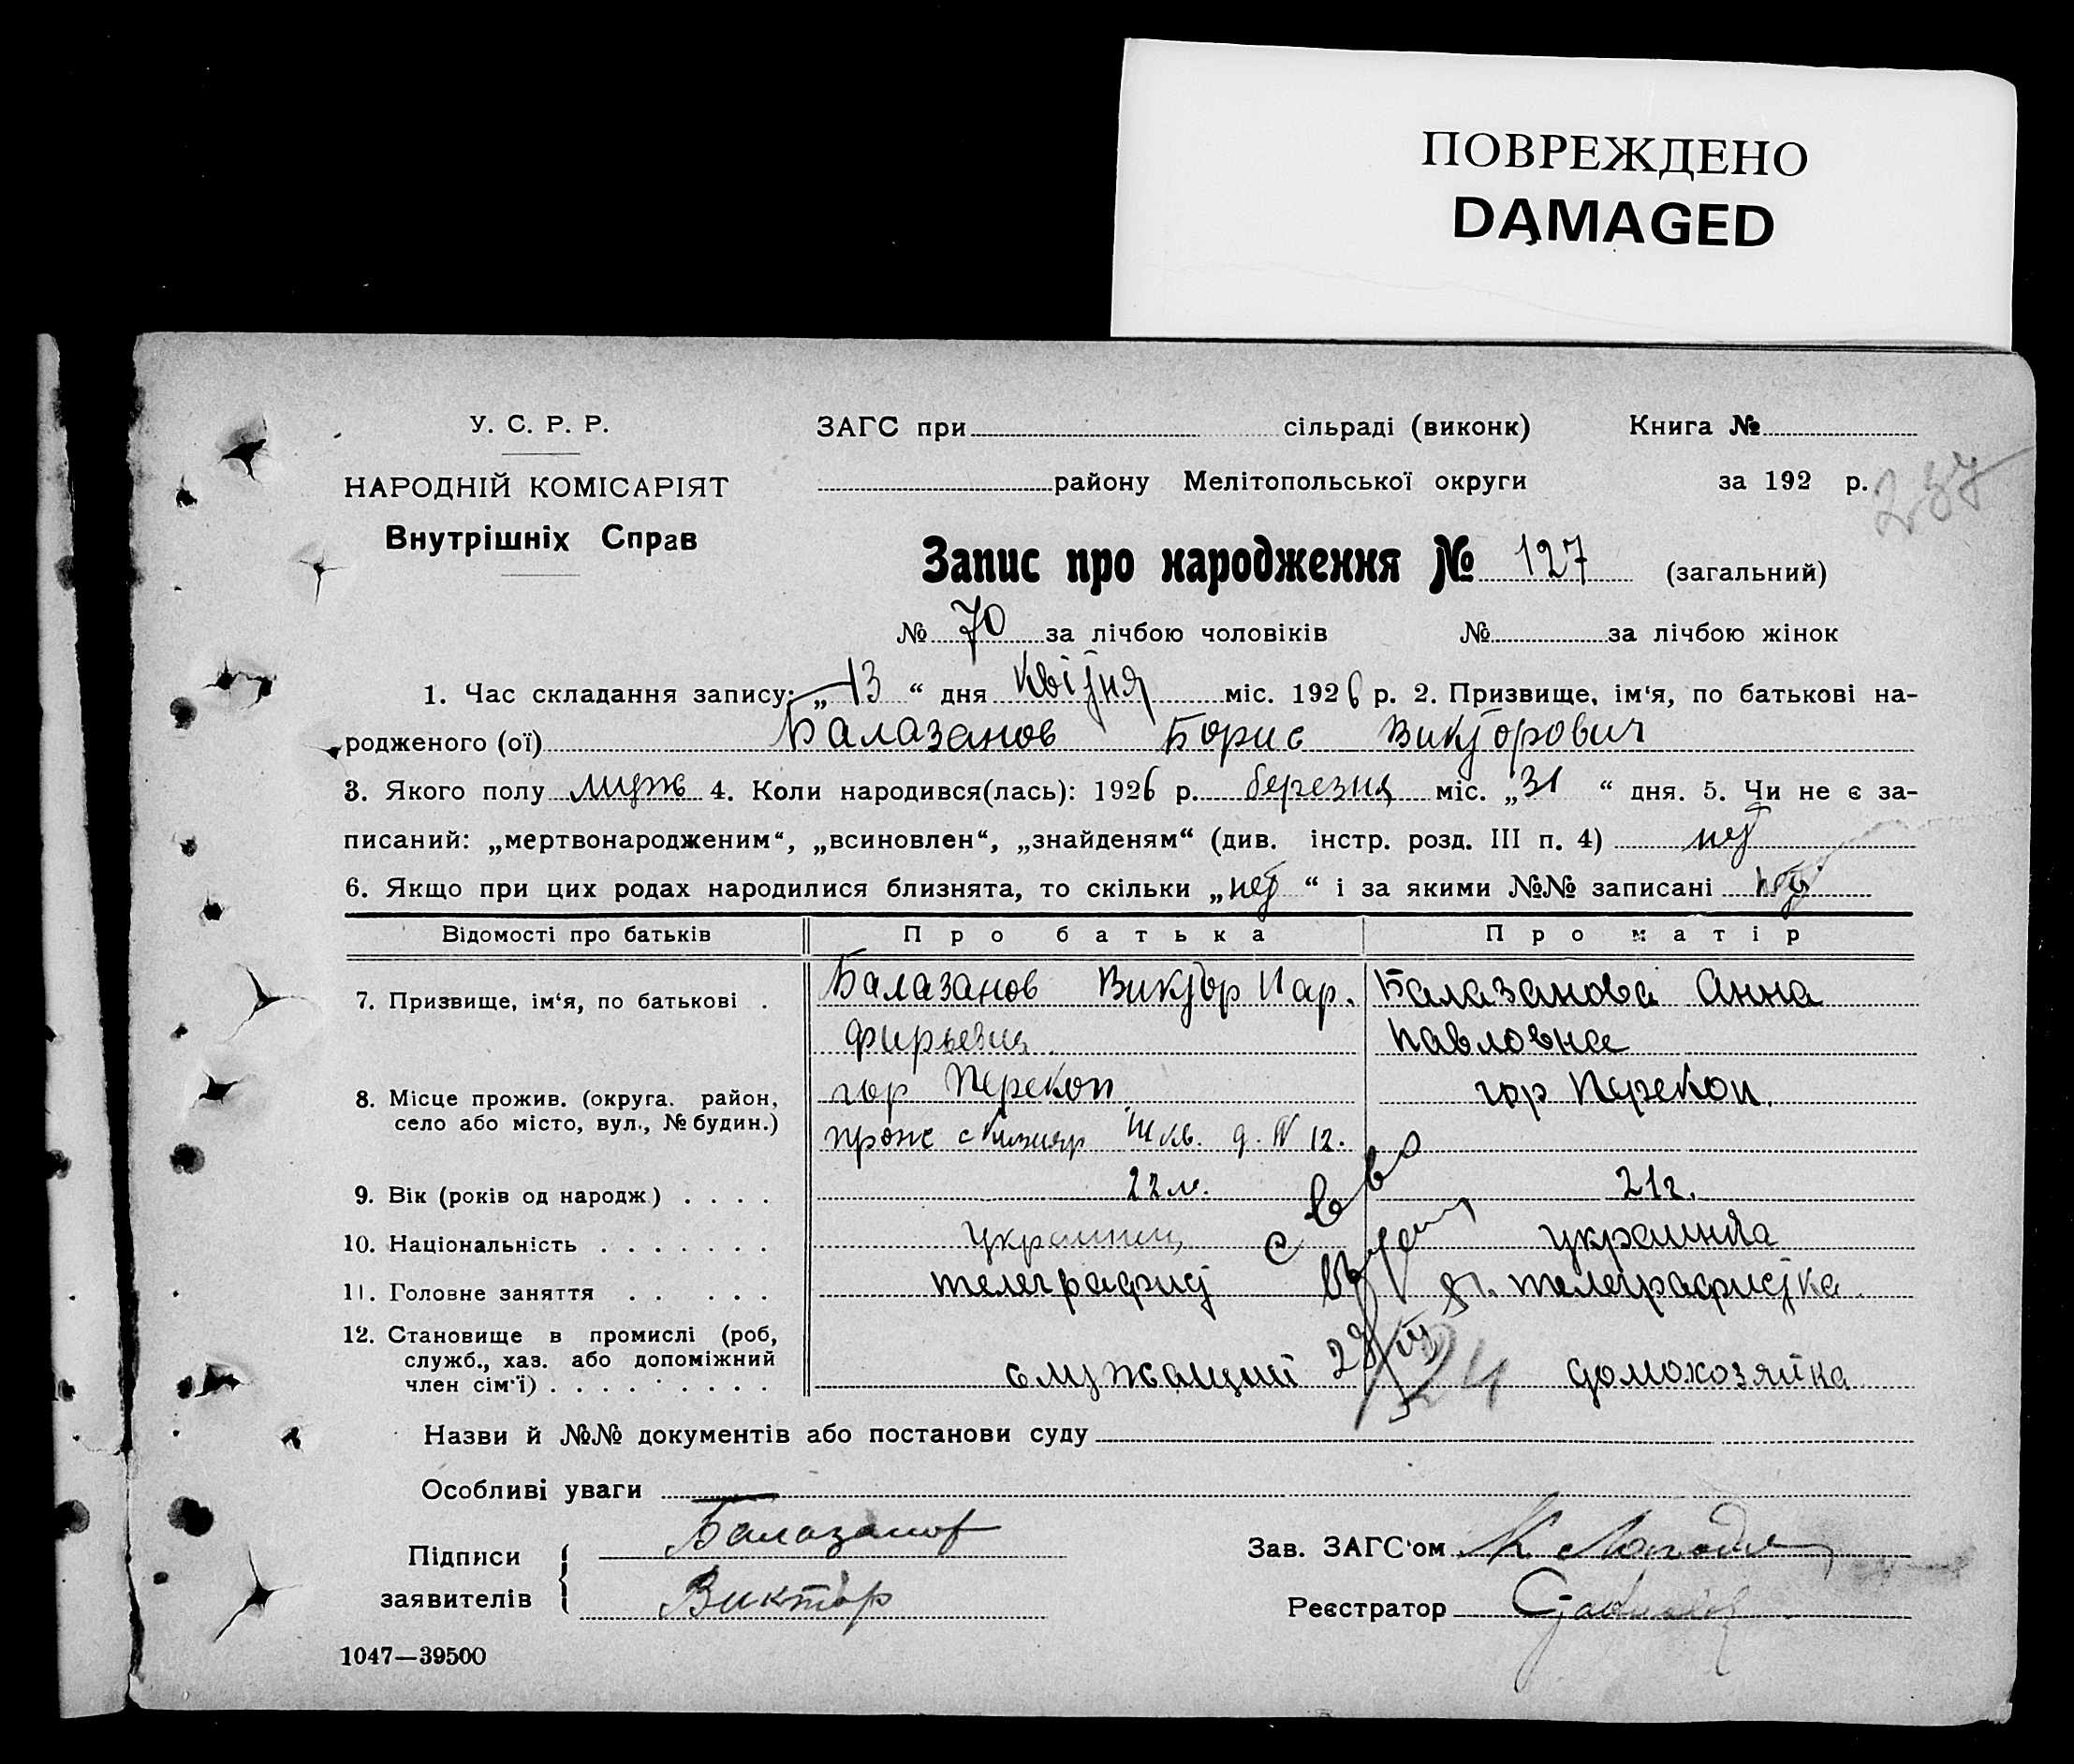 ПОВРЕЖДЕНО
DAMAGED
У. С. Р. Р.
НАРОДНІЙ КОМІСАРІЯТ
Внутрішніх Справ
ЗАГС при сільраді (виконк) Книга №
району Мелітопольської округи за 192 р.
237
Запис про народження № 127 (загальний)
№ 70 за лічбою чоловіків № за лічбою жінок
1. Час складання запису: „13“ дня квітня міс. 1926 р. 2. Призвище, ім‘я, по батькові на-
родженого (ої) Балазанов Борис Викторович
3. Якого полу муж 4. Коли народився(лась): 1926 р. березня міс. „31“ дня. 5. Чи не є за-
писаний: „мертвонародженим“, „всиновлен“, „знайденям“ (див. інстр. розд. III п. 4) нет
6. Якщо при цих родах народилися близнята, то скільки „нет“ і за якими №№ записані нет
Відомості про батьків Про батька Про матір
7. Призвище, ім‘я, по батькові . Балазанов Виктор Пар. Балазанова Анна
фирьевич Павловна
8. Місце прожив. (округа. район, гор Перекоп гор Перекоп.
село або місто, вул., № будин.) прож д. № 12.
9. Вік (років од народж) . . . . 22 л. 21 г.
10. Національність . . . . . . . украинец украинка
11. Головне заняття . . . . . телеграфист телеграфистка
12. Становище в промислі (роб,
служб., хаз. або допоміжний
член сім‘ї) . . . . . . . . . служащий домохозяйка
24
Назви й №№ документів або постанови суду
Особливі уваги
Підписи Балазанов Зав. ЗАГС‘ом
заявителів Виктор Реєстратор
1047—39500